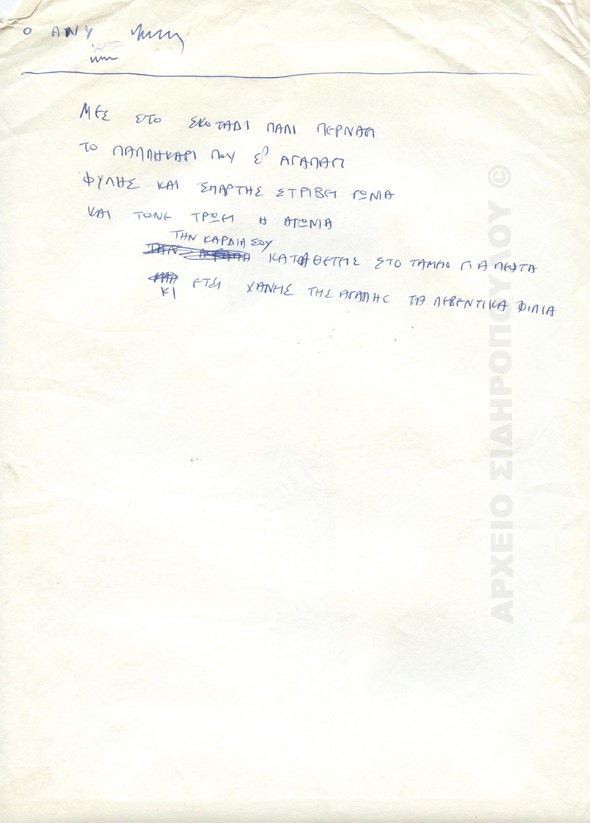 Ο ΑΝΥ
ΜΕΣ ΣΤΟ ΣΚΟΤΑΔΙ ΠΑΛΙ ΠΕΡΝΑΕΙ
ΤΟ ΠΑΛΛΗΚΑΡΙ ΠΟΥ Σ' ΑΓΑΠΑΕΙ
ΦΥΛΗΣ ΚΑΙ ΣΠΑΡΤΗΣ ΣΤΡΙΒΕΙ ΓΩΝΙΑ
ΚΑΙ ΤΟΝΕ ΤΡΩΕΙ Η ΑΓΩΝΙΑ
ΤΗΝ ΚΑΡΔΙΑ ΣΟΥ
ΚΑΤΑΘΕΤΕΙΣ ΣΤΟ ΤΑΜΕΙΟ ΓΙΑ ΛΕΦΤΑ
ΚΙ ΕΤΣΙ ΧΑΝΕΙΣ ΤΗΣ ΑΓΑΠΗΣ ΤΑ ΛΕΒΕΝΤΙΚΑ ΦΙΛΙΑ
ΑΡΧΕΙΟ ΣΙΔΗΡΟΠΟΥΛΟΥ ©